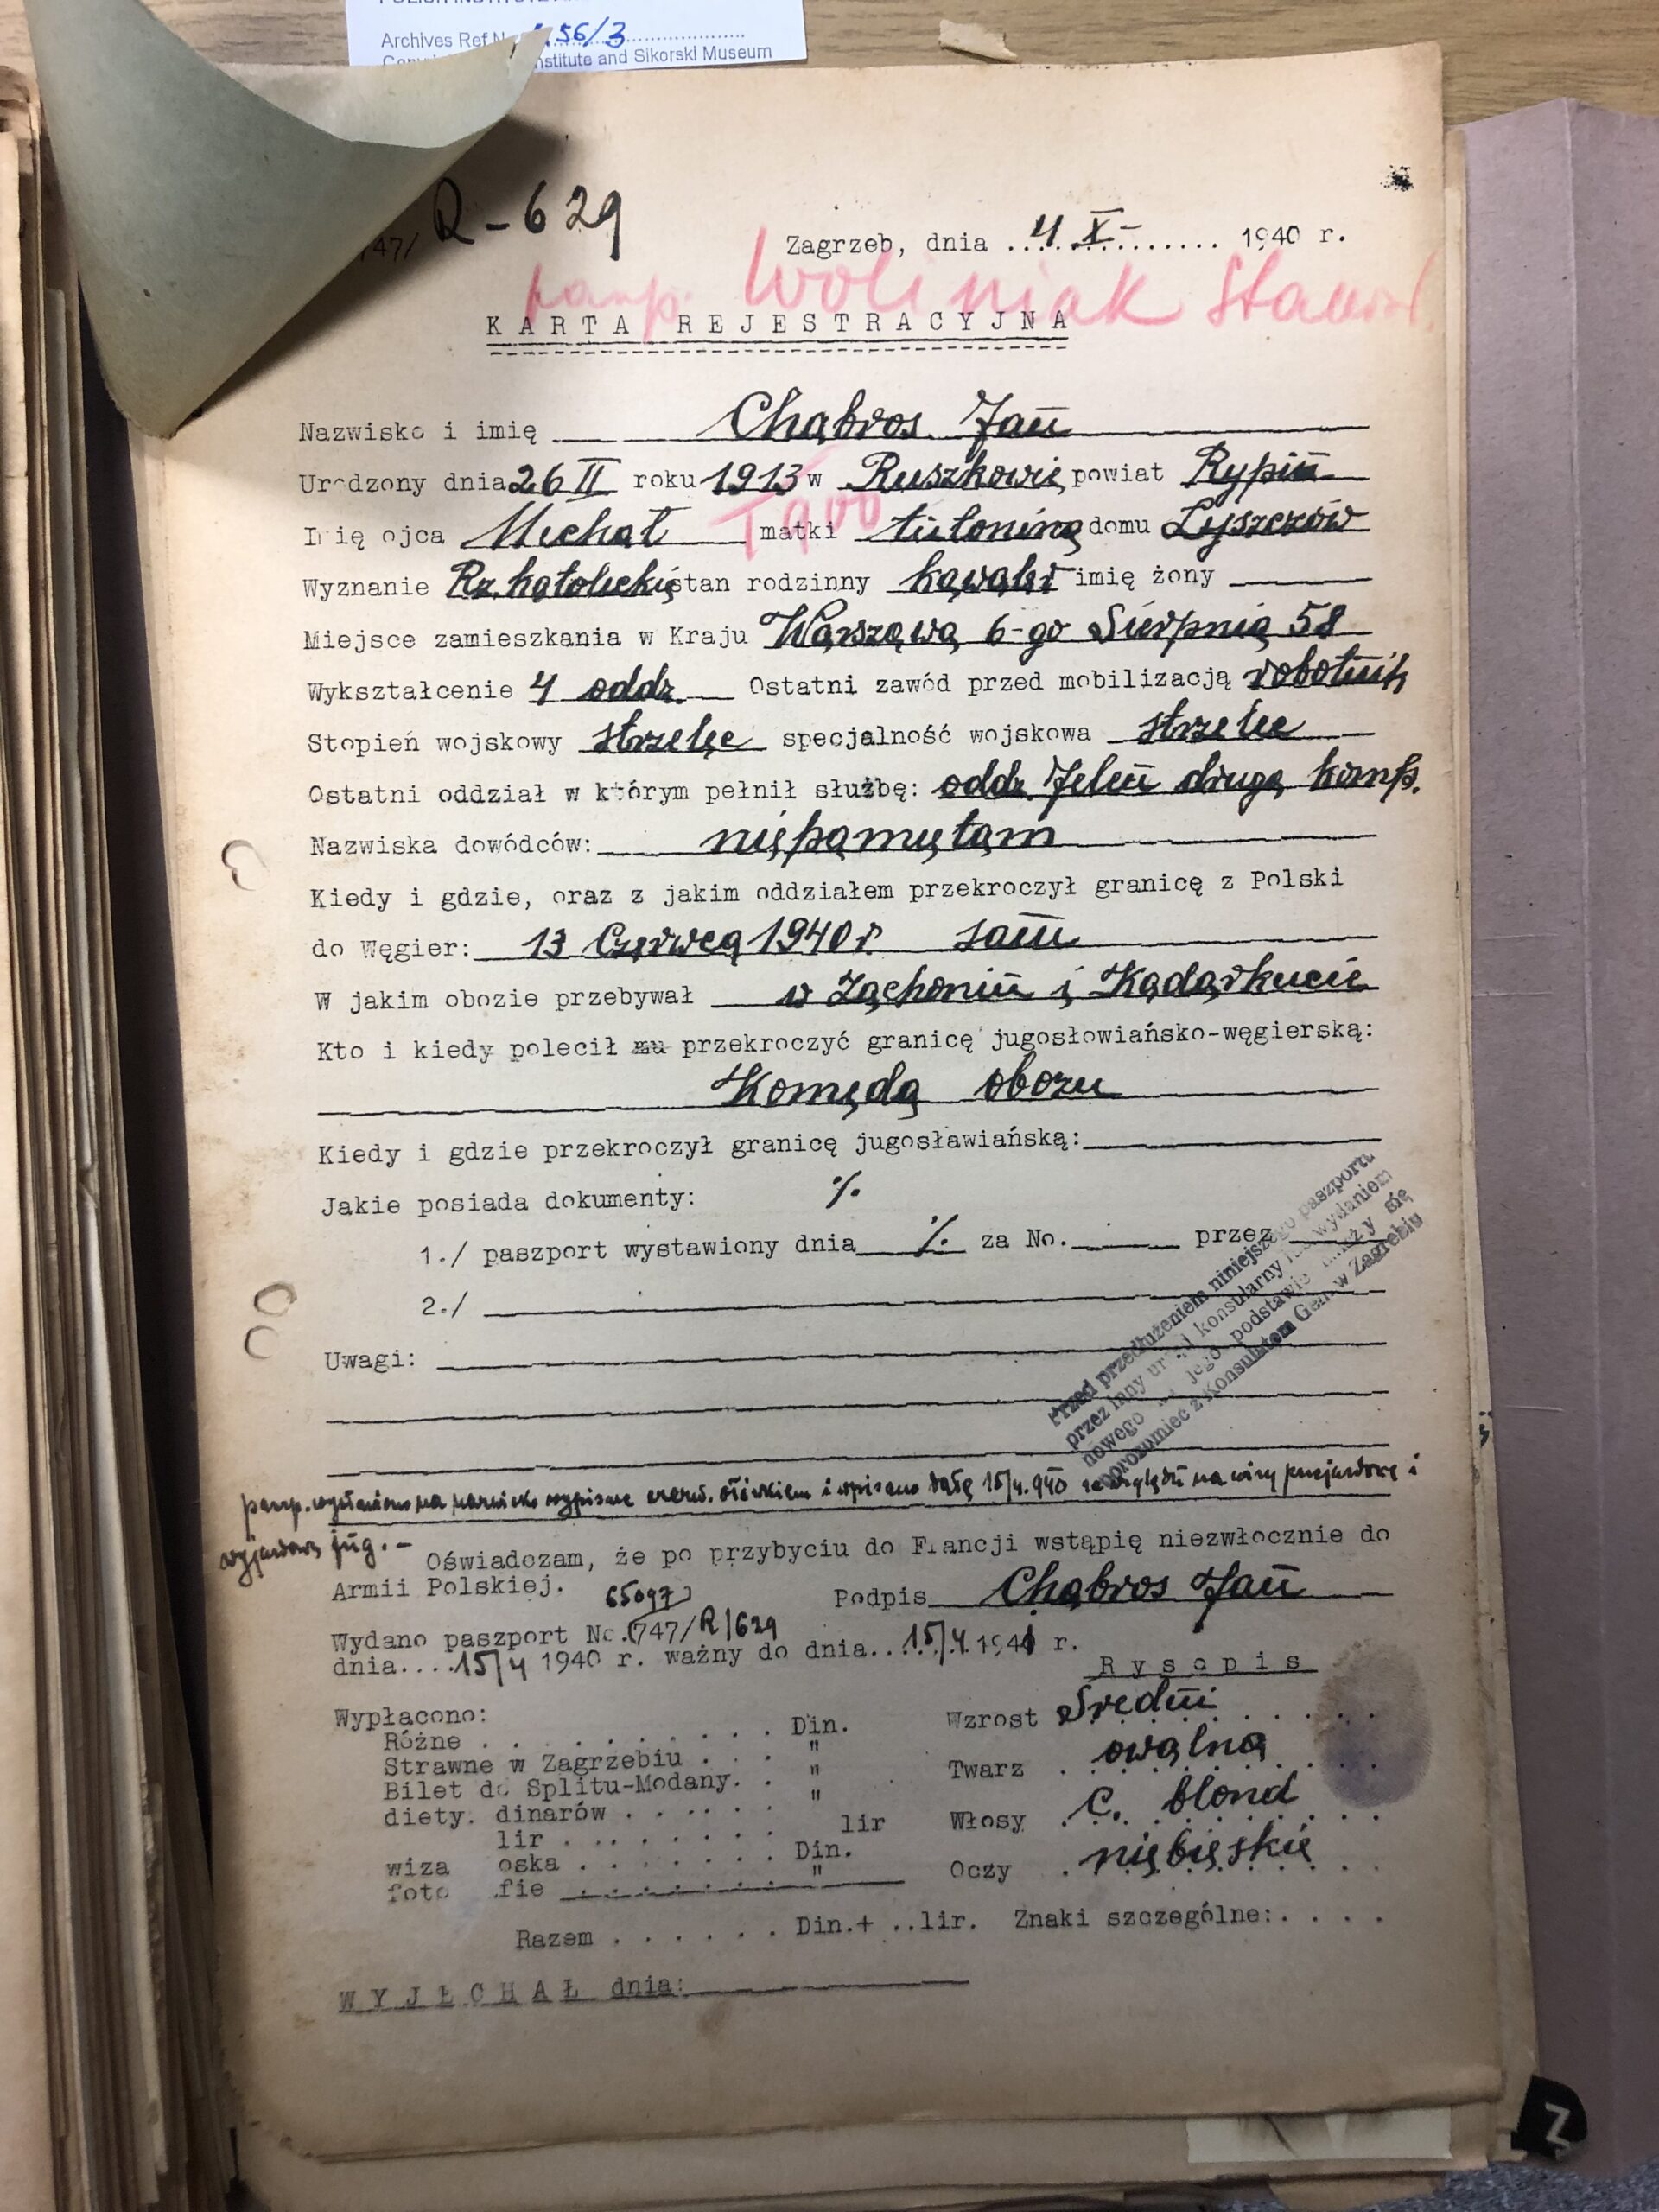 Archives Ref.N 56/3
nstitute and Sikorski Museum
747/ R-629
Zagrzeb, dnia ...4 X........... 1940 r.
pasp. Woliniak
KARTA REJESTRACYJNA
Nazwisko i imię Chabros Jan
Urodzony dnia 26 II roku 1913 w Ruszkowie powiat Rypin
1900
Imię ojca Michał matki domu Łyszczów
Wyznanie Rz. katolickie stan rodzinny kawaler imię żony
Miejsce zamieszkania w Kraju Warszawa 6-go Sierpnia 58
Wykształcenie 4 oddz. Ostatni zawód przed mobilizacją robotnik
Stopień wojskowy strzelec specjalność wojskowa strzelec
Ostatni oddział w którym pełnił służbę: oddz. Jeleń druga komp.
Nazwiska dowódców: niepamiętam
Kiedy i gdzie, oraz z jakim oddziałem przekroczył granicę z Polski
do Węgier: 13 Czerwca 1940 r. sam
W jakim obozie przebywał w Zachoniu i Kadarkucie
Kto i kiedy polecił mu przekroczyć granicę jugosłowiańsko-węgierską:
Komęda obozu
Kiedy i gdzie przekroczył granicę jugosławiańską:
Jakie posiada dokumenty: %
1./ paszport wystawiony dnia % za No. przez
2./
Uwagi:
Przed przedłużeniem niniejszego paszportu
przez inny urząd konsularny lub wydaniem
nowego jego podstawie należy się
porozumieć z Konsulatem Gen. w Zagrebiu
pasp. wystawiono na nazwisko wypisane czerw. ołówkiem i wpisano datę 15/4.940 ze względu na wizy przejazdowe i
wyjazdowe jug. -
Oświadczam, że po przybyciu do Francji wstąpię niezwłocznie do
Armii Polskiej. 65097 Podpis Chabros Jan
Wydano paszport No. 747/R/629
dnia....15/4 1940 r. ważny do dnia...15/4.1941 r.
Rysopis
Wypłacono:
Różne . . . . . . . . . . . Din.
Wzrost Średni
Strawne w Zagrzebiu . . . "
Twarz owalna
Bilet do Splitu-Modany. . "
diety. dinarów . . . . . . "
Włosy c. blond
lir . . . . . . . . lir
wiza oska . . . . . . . Din.
Oczy niebieskie
foto fie . . . . . . . "
Razem . . . . . . Din.+ ..lir. Znaki szczególne:. . . .
WYJECHAŁ dnia: